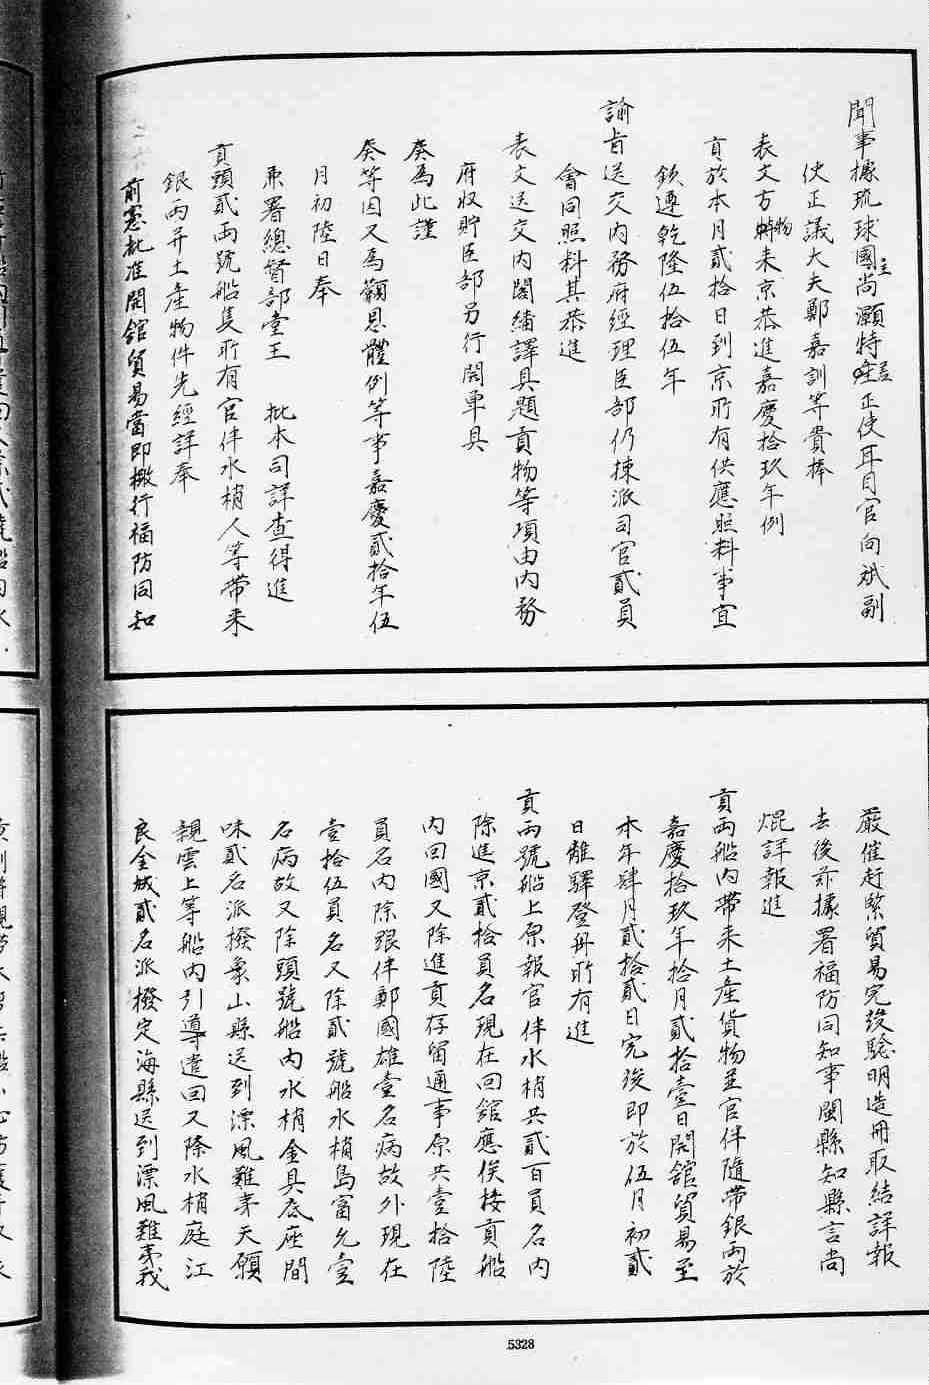 聞事據琉球國王尚灝特遣正使耳目官向斌副
使正議大夫鄭嘉訓等貴捧
表文方物来京恭進嘉慶拾玖年例
貢於本月貳拾日到京所有供應照料事宜
欽遵乾隆伍拾伍年
諭旨送交内務府經理臣部仍揀派司官貳員
會同照料其恭進
表文送交内閣繙譯具題貢物等項由内務
府収貯臣部另行開單具
奏為此謹
奏等因又為籲恩體例等事嘉慶貳拾年伍
月初陸日奉
兼署總督部堂王 批本司詳查得進
貢頭貳両號船隻所有官伴水梢人等帶来
銀両并土產物件先經詳奉
前憲批准開舘貿易當即檄行福防同知
嚴催赶緊貿易完竣驗明造冊取結詳報
去後茲據署福防同知事閩縣知縣言尚
焜詳報進
貢両船内帶来土產貨物並官伴隨帶銀両於
嘉慶拾玖年拾月貳拾壹日開舘貿易至
本年肆月貳拾貳日完竣即於伍月初貳
日離驛登舟所有進
貢両號船上原報官伴水梢共貳百員名内
除進京貳拾員名現在回舘應俟接貢船
内回國又除進貢存留通事原共壹拾陸
員名内除跟伴鄭國雄壹名病故外現在
壹拾伍員名又除貳號船水梢島富允壹
名病故又除頭號船内水梢金具底座間
味貳名派撥象山縣送到漂風難夷天願
親雲上等船内引導遣回又除水梢庭江
良金城貳名派撥定海縣送到漂風難夷我
5328